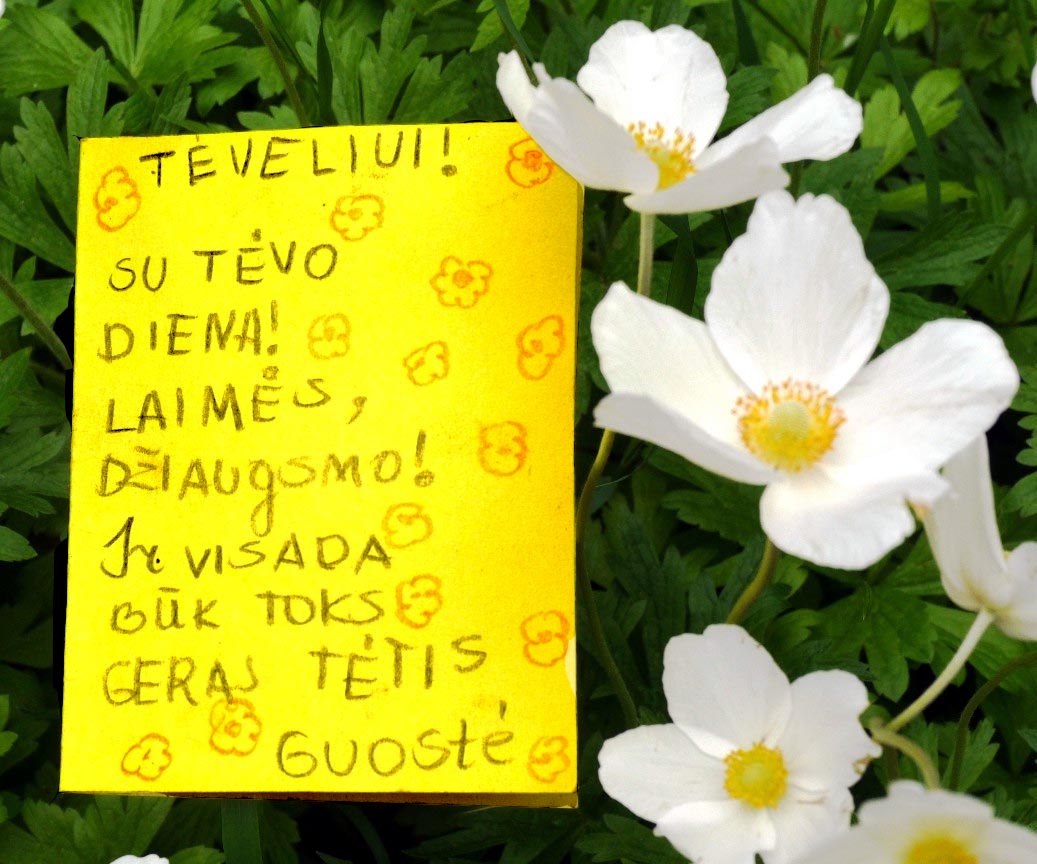 TĖVELIUI!
SU TĖVO
DIENA!
LAIMĖS,
DŽIAUgSMO!
Ir VISADA
BŪK TOKS
GERAS TĖTIS
GUOStė